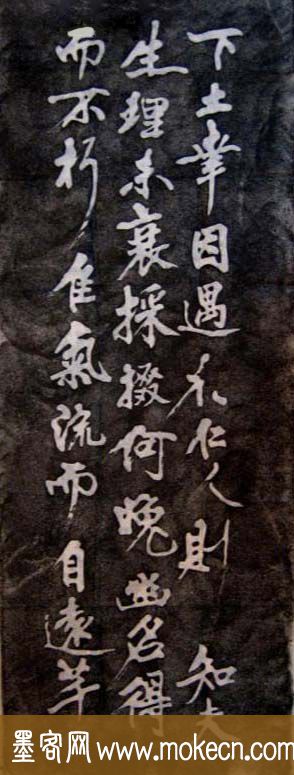 下土幸因遇禾仁人則知夫
生理未衰採掇何晚幽名得
而不朽佳氣流而自遠羊
墨客网 www.mokecn.com